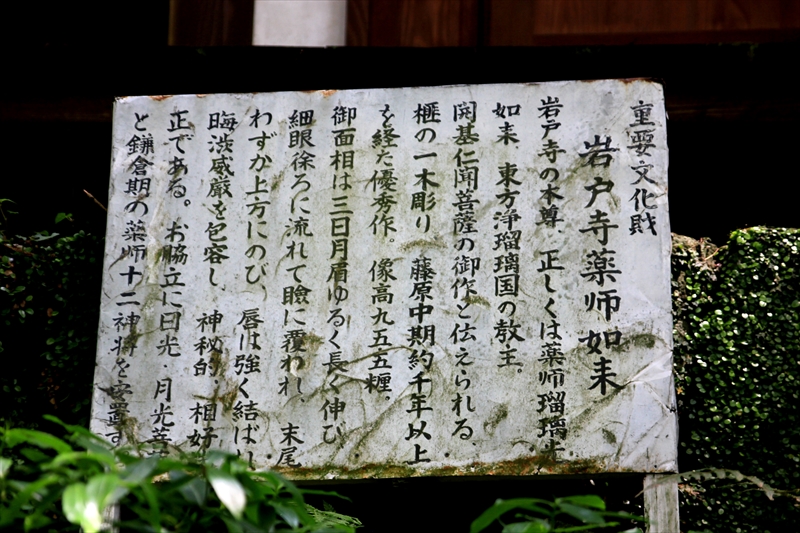 重要文化財
岩戸寺薬師如来
岩戸寺の本尊、正しくは薬師瑠璃光
如来 東方浄瑠璃国の教主。
開基仁聞菩薩の御作と伝えられる
榧の一木彫り 藤原中期約千年以上
を経た優秀作。像高九五五糎、
御面相は三日月眉ゆるく長く伸び
細眼徐ろに流れて瞼に覆われ、末尾
わずか上方にのび、唇は強く結ばれ
晦渋威厳を包容し 神秘的・相好
正である。お脇立に日光・月光菩
と鎌倉期の薬師十二神将を安置す